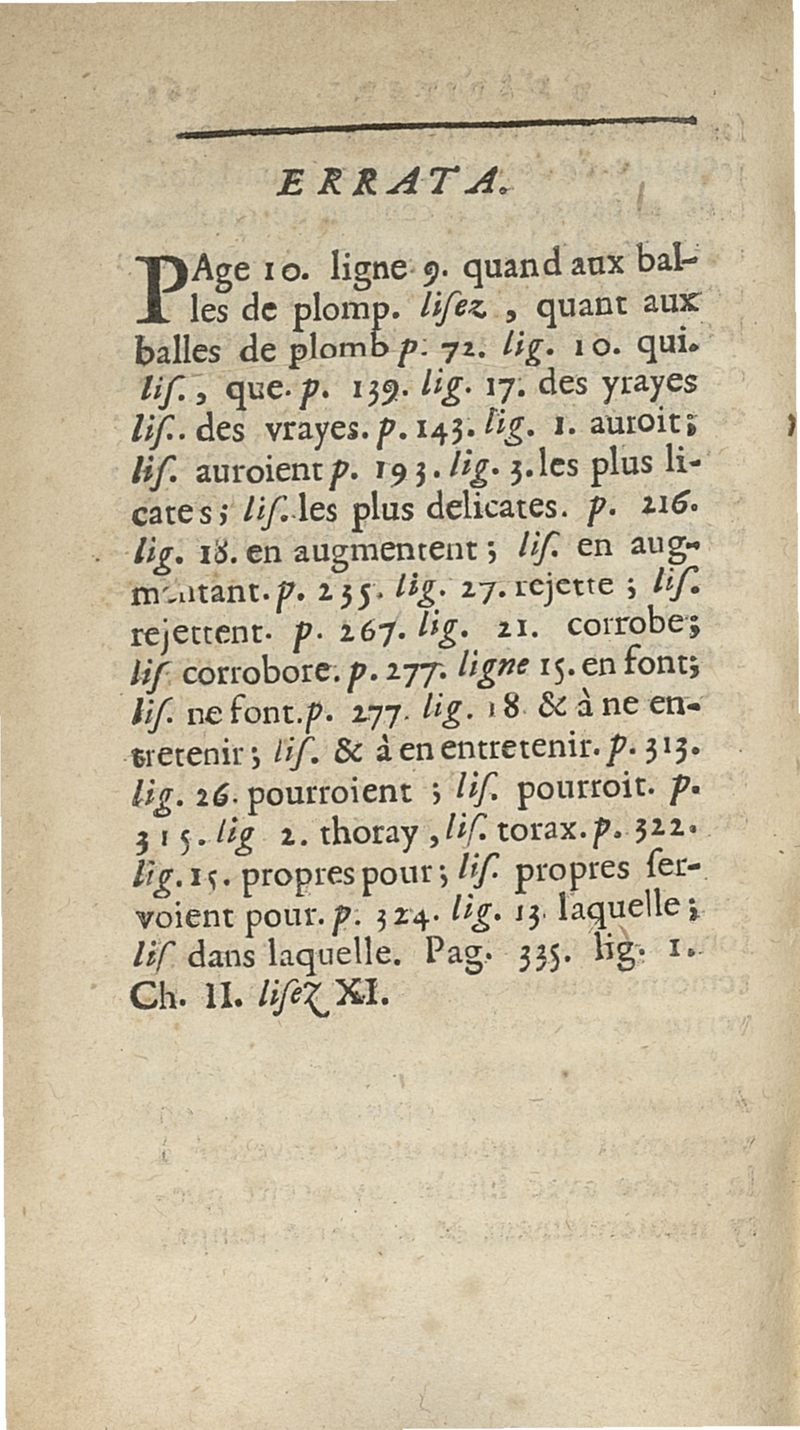 ERRATA.
PAge 10. ligne 9. quand aux bal-
les de plomp. liſez , quant aux
balles de plomb p. 72. lig. 10. qui.
liſ. , que. p. 139. lig. 17. des yrayes
liſ.. des vrayes. p. 143. lig. 1. auroit ;
liſ. auroient p. 193. lig. 3. les plus li-
cates ; liſ. les plus delicates. p. 216.
lig. 18. en augmentent ; liſ. en aug-
mentant. p. 235. lig. 27. rejette ; liſ.
rejettent. p. 267. lig. 21. corrobe ;
liſ corrobore. p. 277. ligne 15. en font ;
liſ. ne font. p. 277. lig. 18 & à ne en-
tretenir ; liſ. & à en entretenir. p. 313.
lig. 26. pourroient ; liſ. pourroit. p.
315. lig 2. thoray , liſ. torax. p. 322.
lig. 15. propres pour ; liſ. propres ſer-
voient pour. p. 324. lig. 13. laquelle ;
liſ dans laquelle. Pag. 335. lig. 1.
Ch. II. liſez XI.